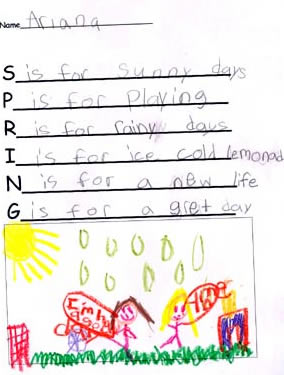 Name Ariana
S is for sunny days
P is for Playing
R is for rainy days
I is for ice cold lemonad
N is for a new life
G is for a gret day
I'm h